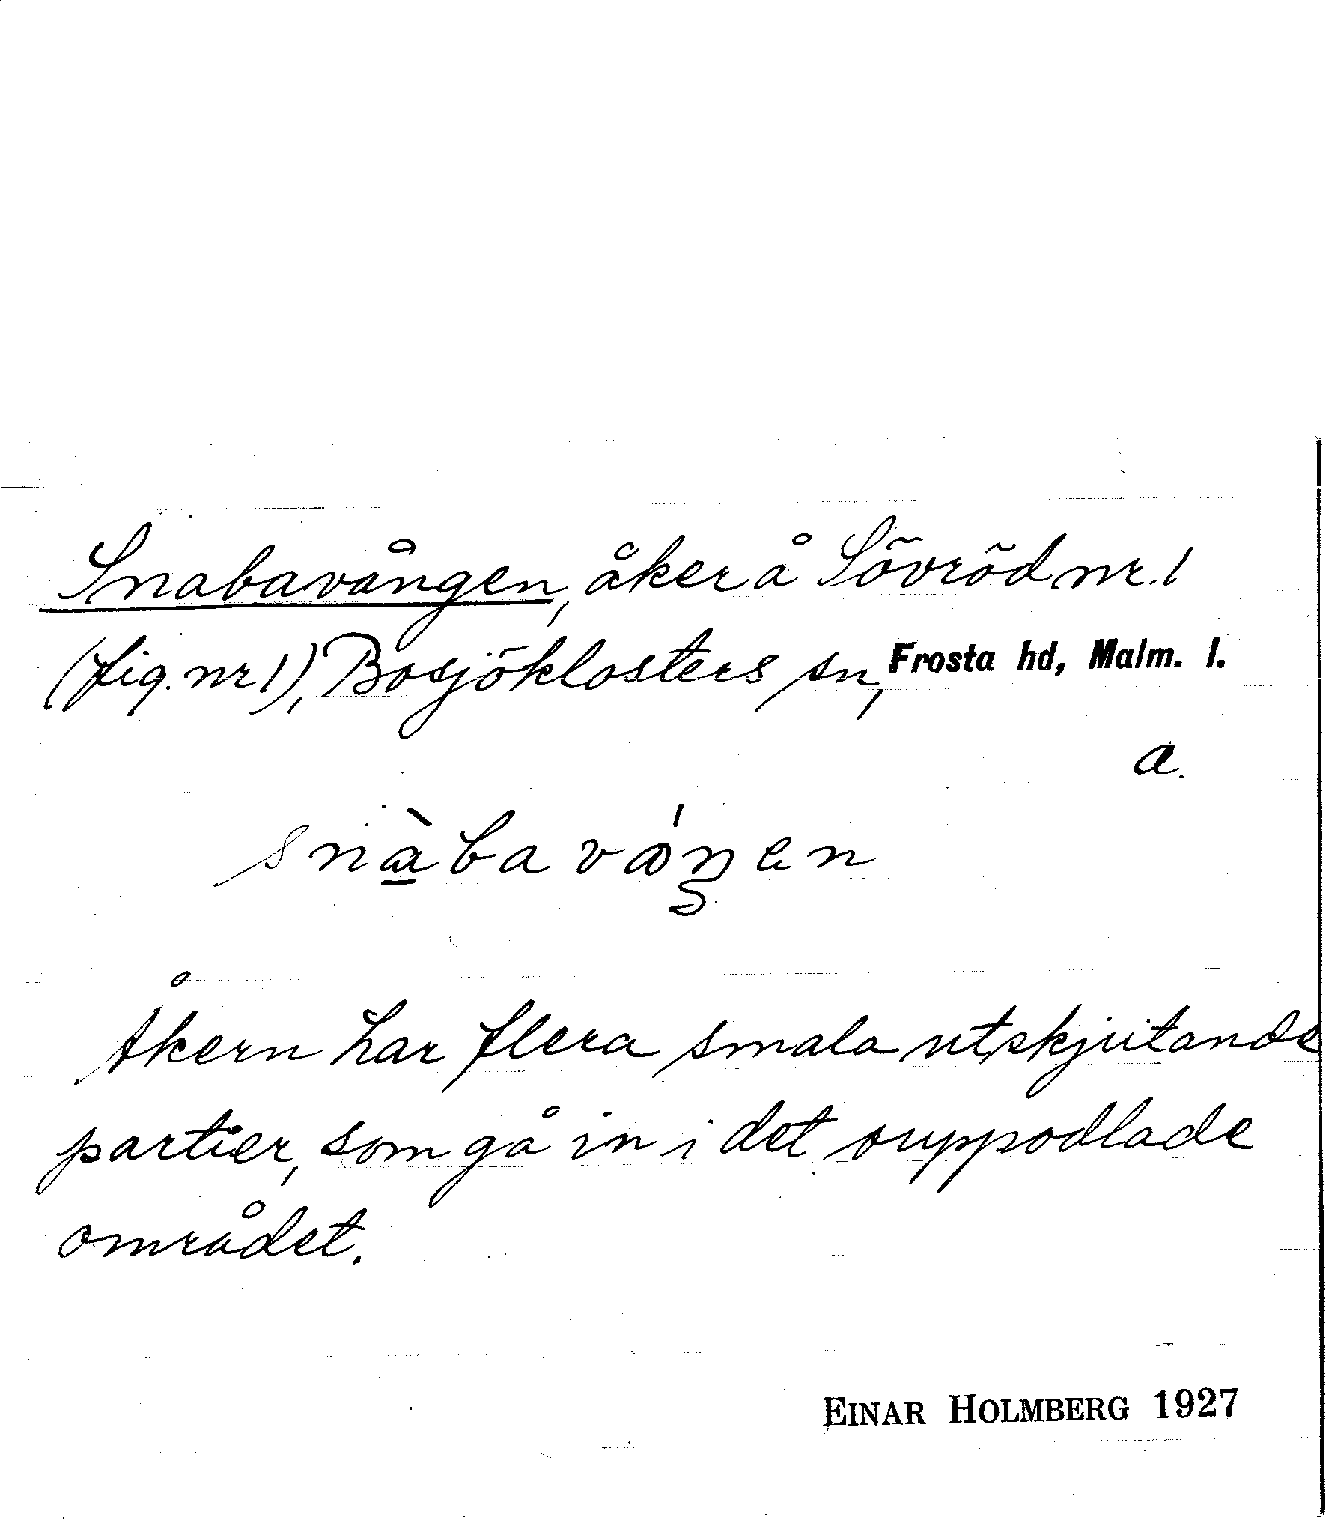 Snabavången, åker å Sövröd nr. 1
(fig. nr 1), Bosjöklosters sn, Frosta hd, Malm. l.
a.
snàba váŋen
Åkern har flera smala utskjutande
partier, som gå in i det ouppodlade
området.
EINAR HOLMBERG 1927